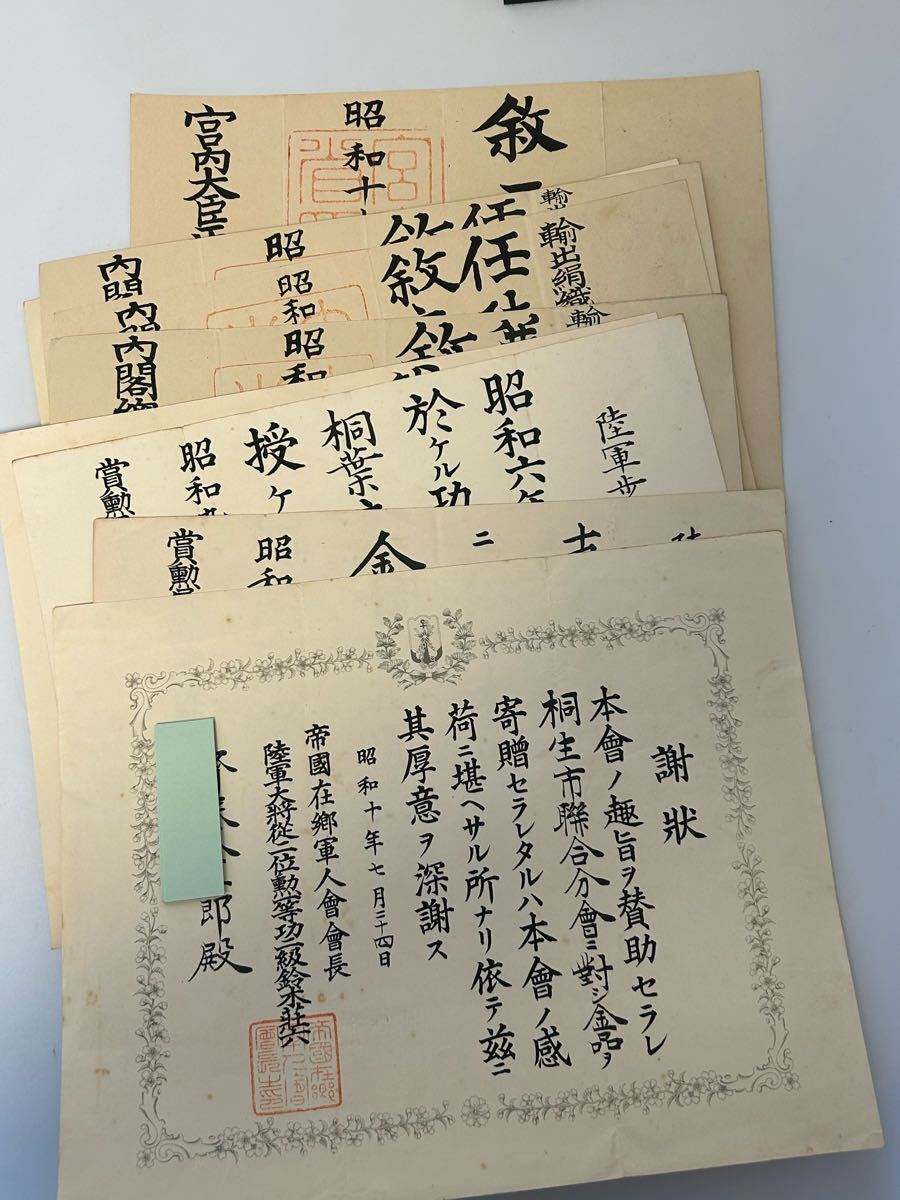 敘
昭和十
宮内大臣
輸出
任
敘
昭
内閣
輸出絹織
任
敘
昭和
内閣
輸
敘
昭和
内閣總
陸軍歩
昭和六年
於ケル功
桐葉
授ケ
昭和九
賞勲
陸
士
ニ
金
昭和
賞勲
謝狀
本會ノ趣旨ヲ賛助セラレ
桐生市聯合分會ニ對シ金品ヲ
寄贈セラレタルハ本會ノ感
荷ニ堪ヘサル所ナリ依テ茲ニ
其厚意ヲ深謝ス
昭和十年七月二十四日
帝國在鄕軍人會會長
陸軍大將從二位勲一等功二級鈴木莊六
郎殿